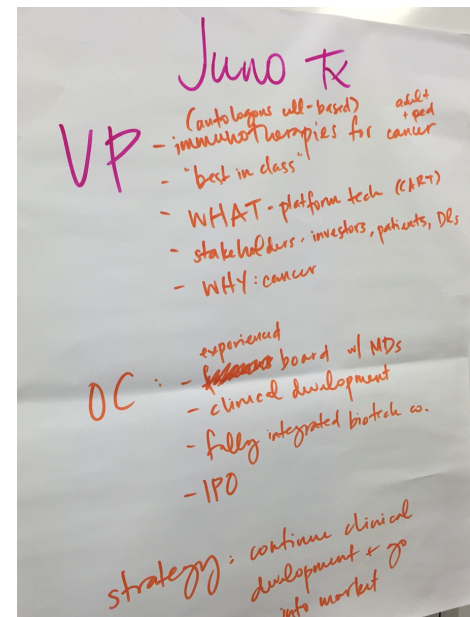 Juno Tx
(autologous cell-based) adult + ped
VP - immunotherapies for cancer
- "best in class"
- WHAT - platform tech (CART)
- stakeholders - investors, patients, DRs
- WHY: cancer
experienced
OC: - board w/ MDs
- clinical development
- fully integrated biotech co.
- IPO
strategy: continue clinical
development + go
into market